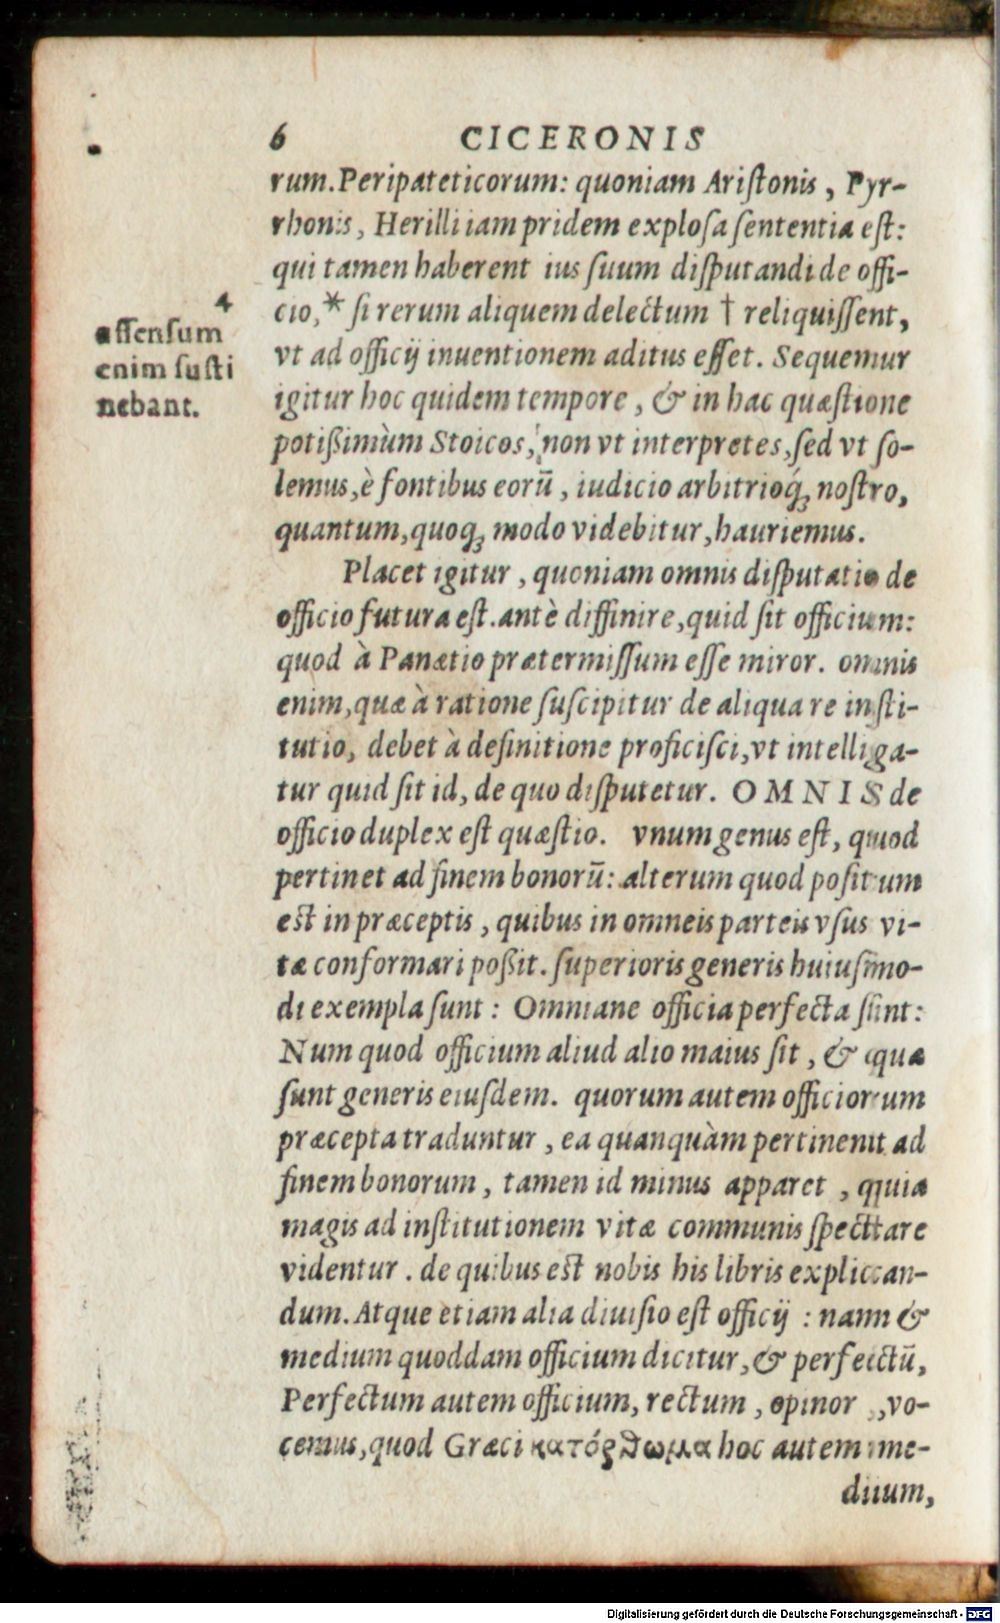 6 CICERONIS
rum. Peripateticorum: quoniam Ariſtonis, Pyr-
rhonis, Herilli iam pridem exploſa ſententia eſt:
qui tamen haberent ius ſuum diſputandi de offi-
cio,* ſi rerum aliquem delectum † reliquiſſent,
vt ad officij inuentionem aditus eſſet. Sequemur
igitur hoc quidem tempore, & in hac quæſtione
potißimùm Stoicos, non vt interpretes, ſed vt ſo-
lemus, è fontibus eorū, iudicio arbitrioq́; noſtro,
quantum, quoq; modo videbitur, hauriemus.
4
aſſenſum
enim ſuſti
nebant.
Placet igitur, quoniam omnis diſputatio de
officio futura eſt. antè diffinire, quid ſit officium:
quod à Panætio prætermiſſum eſſe miror. omnis
enim, quæ à ratione ſuſcipitur de aliqua re inſti-
tutio, debet à definitione proficiſci, vt intelliga-
tur quid ſit id, de quo diſputetur. OMNIS de
officio duplex eſt quæſtio. vnum genus eſt, quod
pertinet ad finem bonorū: alterum quod poſitum
eſt in præceptis, quibus in omneis parteis vſus vi-
tæ conformari poßit. ſuperioris generis huiuſmo-
di exempla ſunt: Omniane officia perfecta ſint:
Num quod officium aliud alio maius ſit, & quæ
ſunt generis eiuſdem. quorum autem officiorum
præcepta traduntur, ea quanquàm pertinent ad
finem bonorum, tamen id minus apparet, quia
magis ad inſtitutionem vitæ communis ſpectare
videntur. de quibus eſt nobis his libris explican-
dum. Atque etiam alia diuiſio eſt officij: nam &
medium quoddam officium dicitur, & perfectū,
Perfectum autem officium, rectum, opinor, vo-
cemus, quod Græci κατόρθωμα hoc autem me-
dium,
Digitalisierung gefördert durch die Deutsche Forschungsgemeinschaft - DFG